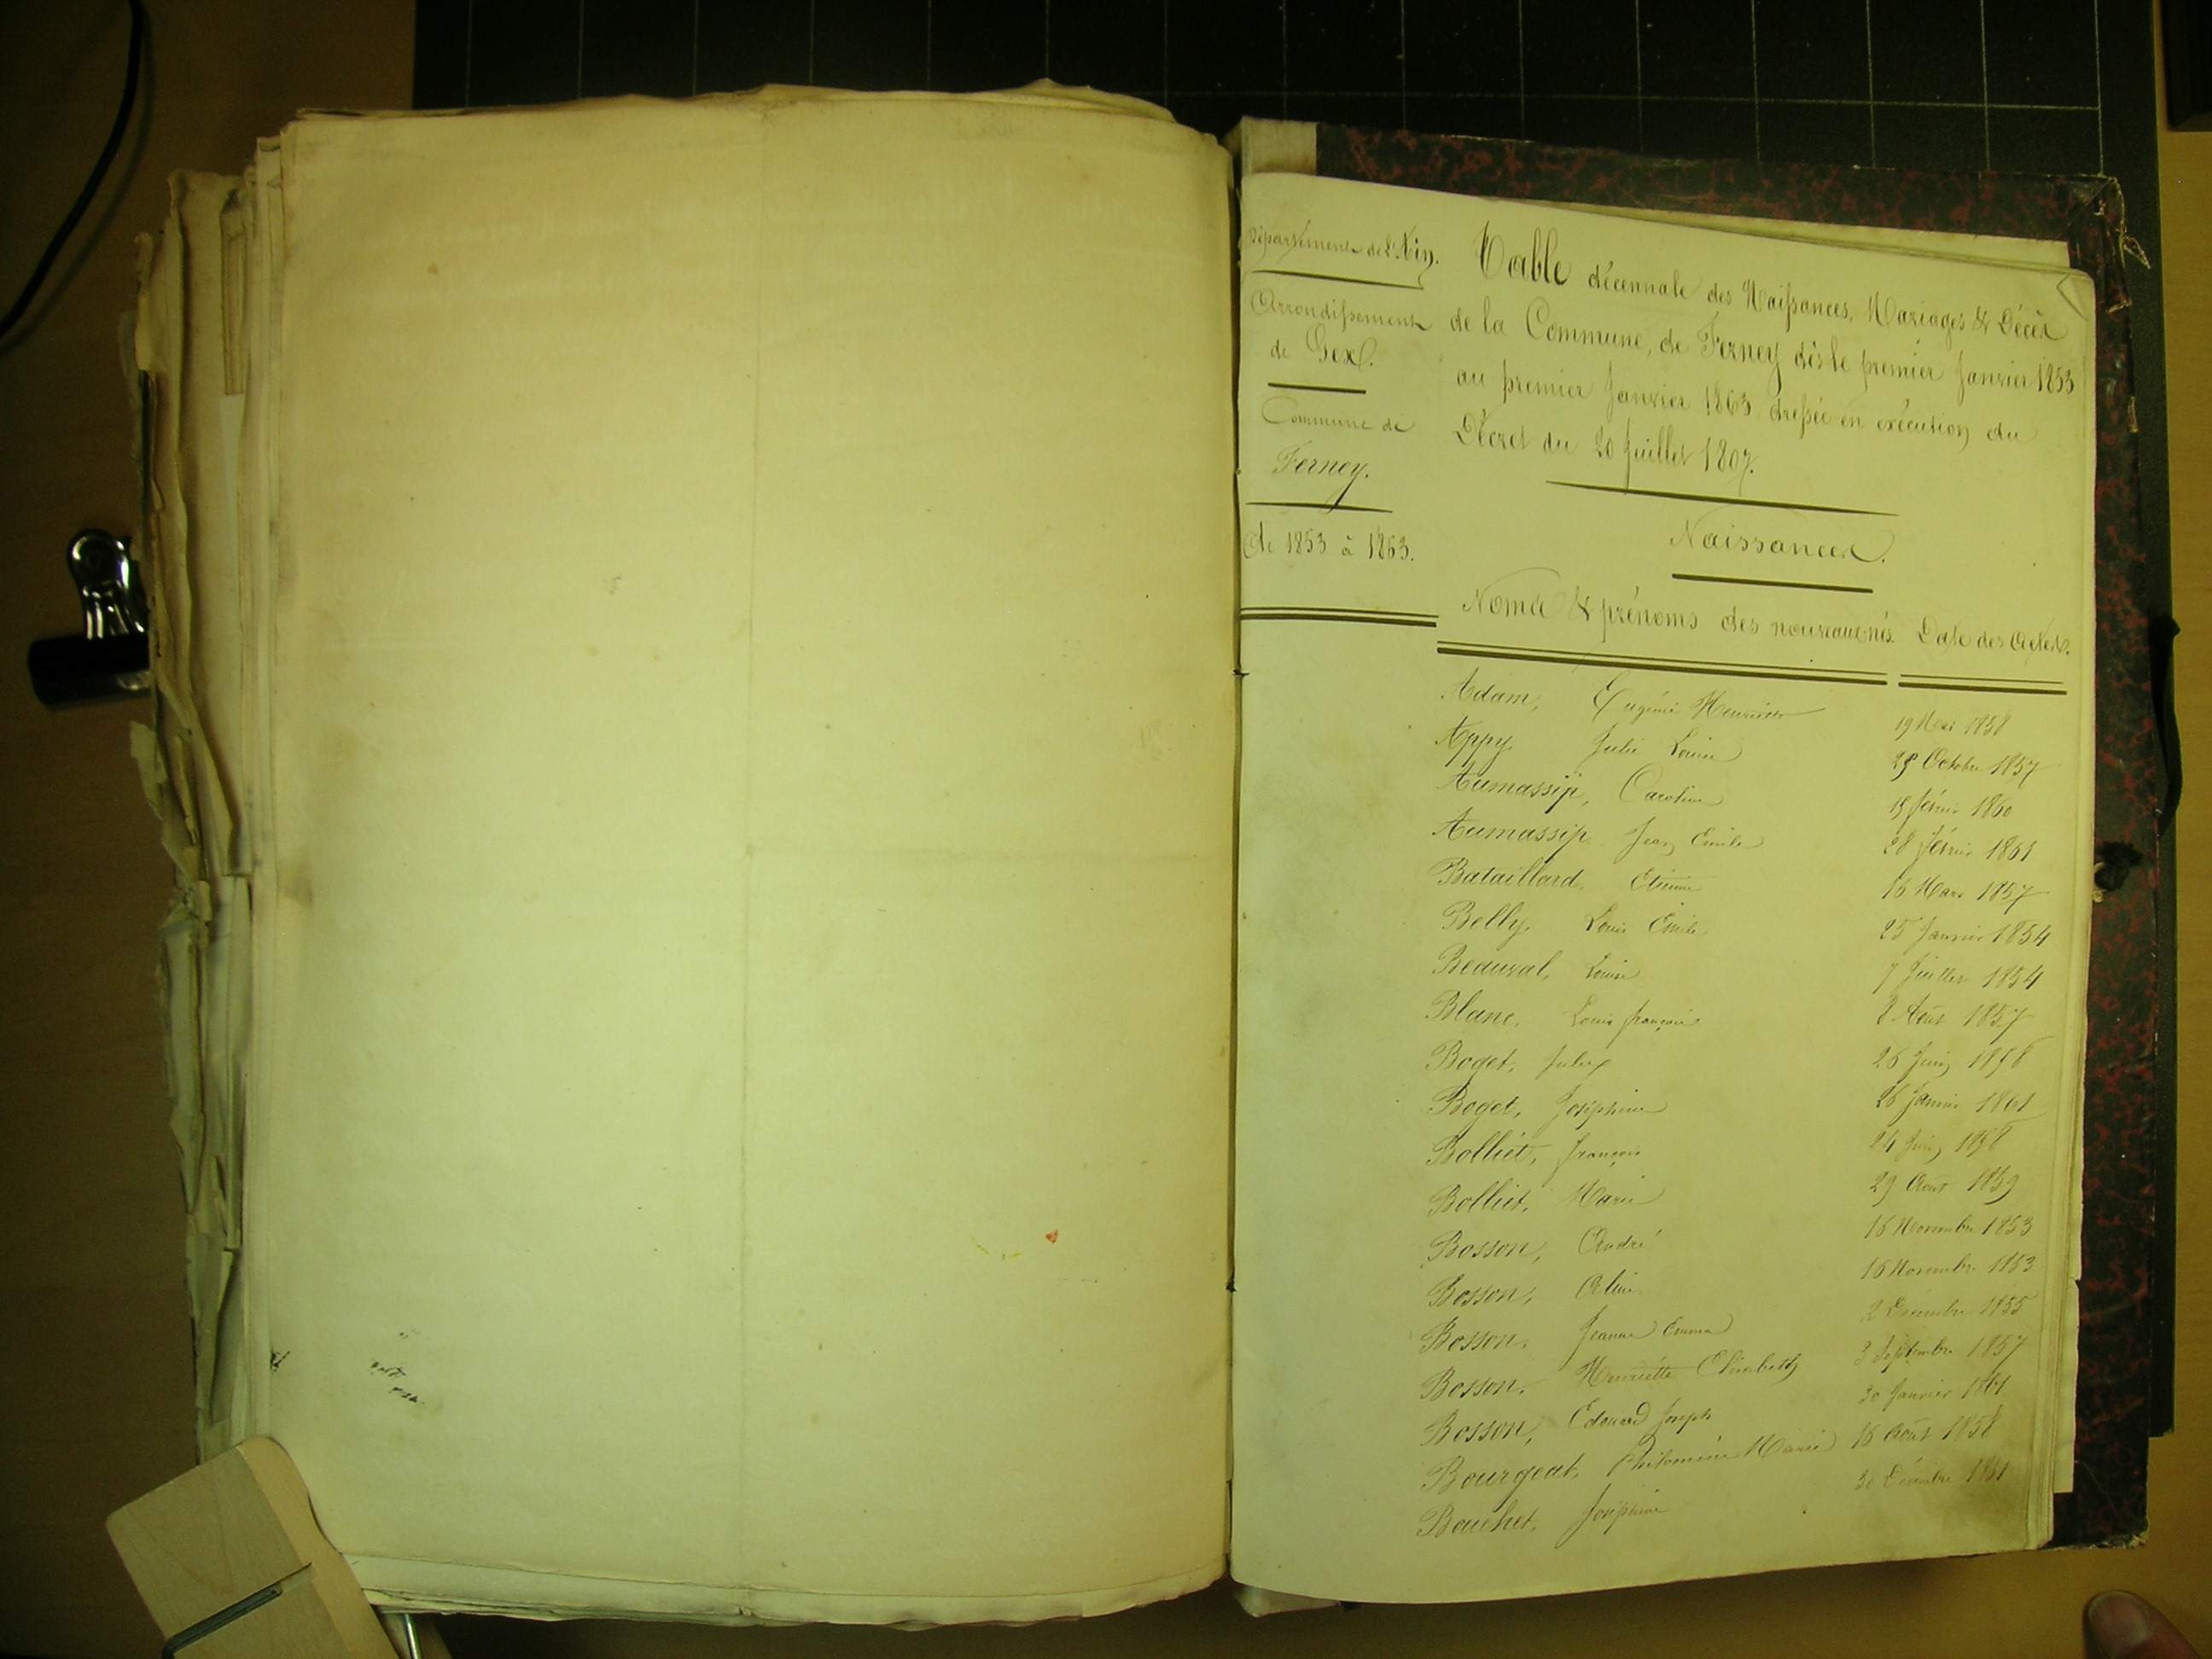 Département de l'Ain.
Arrondissement
de Gex.
Commune de
Ferney.
de 1853 à 1863.
Table décennale des Naissances, Mariages & Décès
de la Commune, de Ferney dès le premier Janvier 1853
au premier Janvier 1863 dressée en exécution du
Décret du 20 Juillet 1807.
Naissances.
Noms & prénoms des nouveaux nés. Date des Actes.
Adam, Eugénie Henriette 19 Mai 1858
Appy, Julie Louise 29 Octobre 1857
Aumassip, Caroline 19 février 1860
Aumassip Jean Emile 28 février 1861
Bataillard, Etienne 16 Mars 1857
Belly, Louis Émile 25 Janvier 1854
Beauval, Louise 7 Juillet 1854
Blanc, Louis françois 8 Août 1857
Boget, Julie 26 Juin 1858
Boget, Joséphine 26 Janvier 1861
Bolliet, françois 24 Juin 1858
Bolliet, Marie 29 Août 1859
Bosson, André 16 Novembre 1853
Bosson, Aline 16 Novembre 1853
Bosson. Jeanne Emma 2 Décembre 1855
Bosson. Henriette Elisabeth 3 Septembre 1857
Bosson, Edouard Joseph 30 Janvier 1861
Bourgeat, Philomène Marie 16 Août 1858
Bouchet, Joséphine 30 Décembre 1861